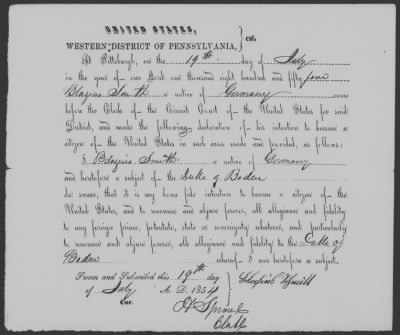 UNITED STATES,
WESTERN DISTRICT OF PENNSYLVANIA, } sct.
At Pittsburgh, on the 19th day of July
in the year of our Lord one thousand eight hundred and fifty four
Blazius Smith a native of Germany came
before the Clerk of the Circuit Court of the United States for said
District, and made the following declaration of his intention to become a
citizen of the United States in such cases made and provided, as follows:
I, Blazius Smith a native of Germany
and heretofore a subject of the Duke of Baden
do swear, that it is my bona fide intention to become a citizen of the
United States, and to renounce and abjure forever, all allegiance and fidelity
to any foreign prince, potentate, state or sovereignty whatever, and particularly
to renounce and abjure forever, all allegiance and fidelity to the Duke of
Baden whereof I was heretofore a subject.
Sworn and Subscribed this 19th day
of July A. D. 1854
Cor.
H Sproul
Clerk